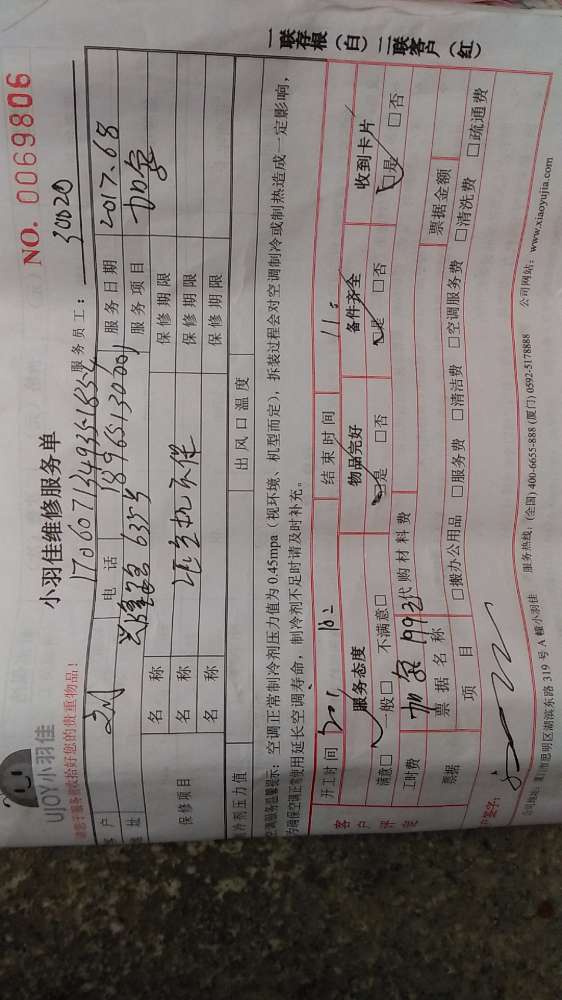 UJOY小羽佳
小羽佳维修服务单
NO. 0069806
请您于服务前收拾好您的贵重物品！
服务员工： 30020
1706071349351854
户
电 话
18965130001
服务日期
2017.6.8
址
6355
服务项目
加氨
保修项目
名 称
保修期限
名 称
保修期限
名 称
保修期限
冷剂压力值
出风口温度
空调服务温馨提示：空调正常制冷剂压力值为0.45mpa（视环境、机型而定），拆装过程会对空调制冷或制热造成一定影响，
为确保空调正常使用延长空调寿命，制冷剂不足时请及时补充。
客户评定
开工时间
结束时间
服务态度
物品完好
备件齐全
收到卡片
满意□
一般□
不满意□
□是
□否
□是
□否
□是
□否
工时费
代购材料费
票据
票据名称
票据金额
项 目
□搬办公用品
□服务费
□清洁费
□空调服务费
□清洗费
□疏通费
户签名：
公司地址：厦门市思明区湖滨东路319号A幢小羽佳
服务热线：(全国) 400-6655-888 (厦门) 0592-5178888
公司网站：www.xiaoyujia.com
一联存根（白）二联客户（红）